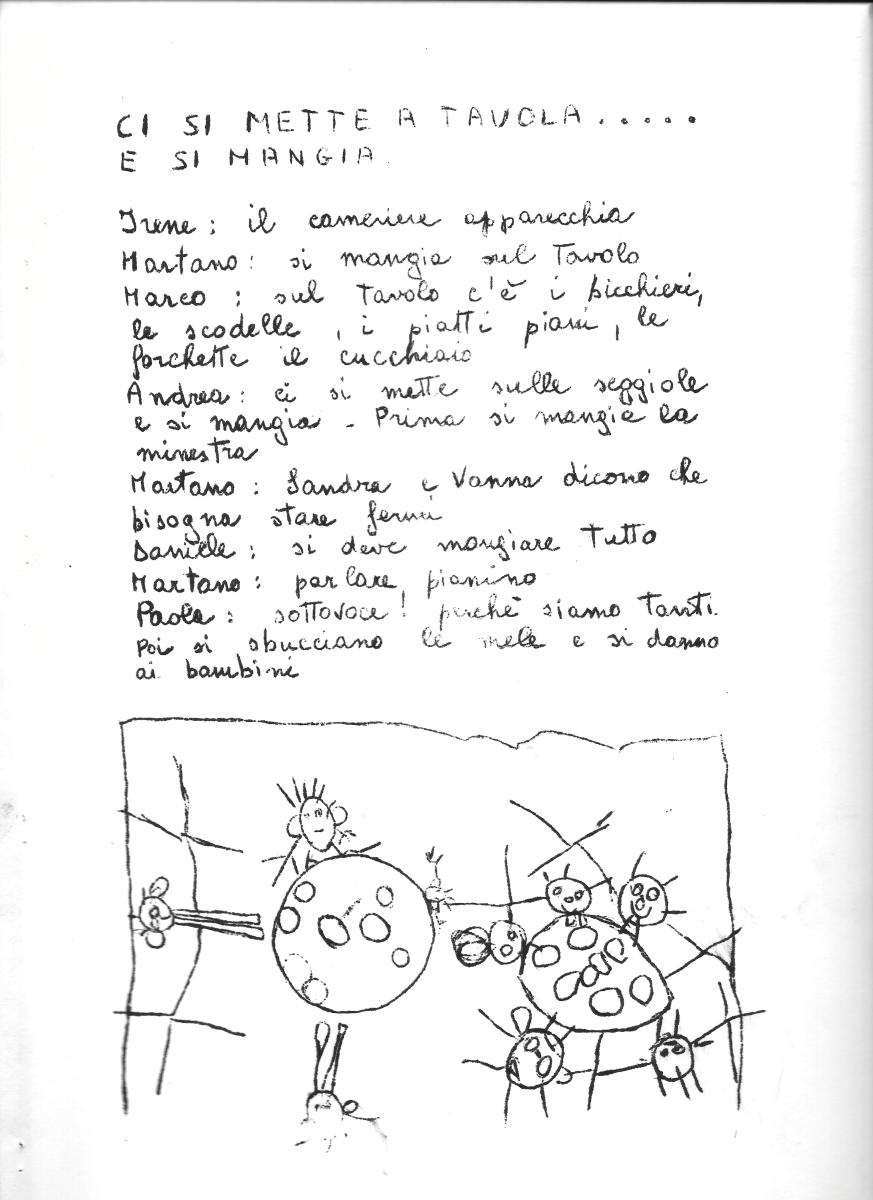 CI SI METTE A TAVOLA.....
E SI MANGIA.
Irene: il cameriere apparecchia
Martano: si mangia sul Tavolo
Marco: sul Tavolo c'è i bicchieri,
le scodelle, i piatti piani, le
forchette il cucchiaio
Andrea: ci si mette sulle seggiole
e si mangia - Prima si mangia la
minestra
Martano: Sandra e Vanna dicono che
bisogna stare fermi
Daniele: si deve mangiare Tutto
Martano: parlare, pianino
Paola: sottovoce! perchè siamo Tanti.
Poi si sbucciano le mele e si danno
ai bambini